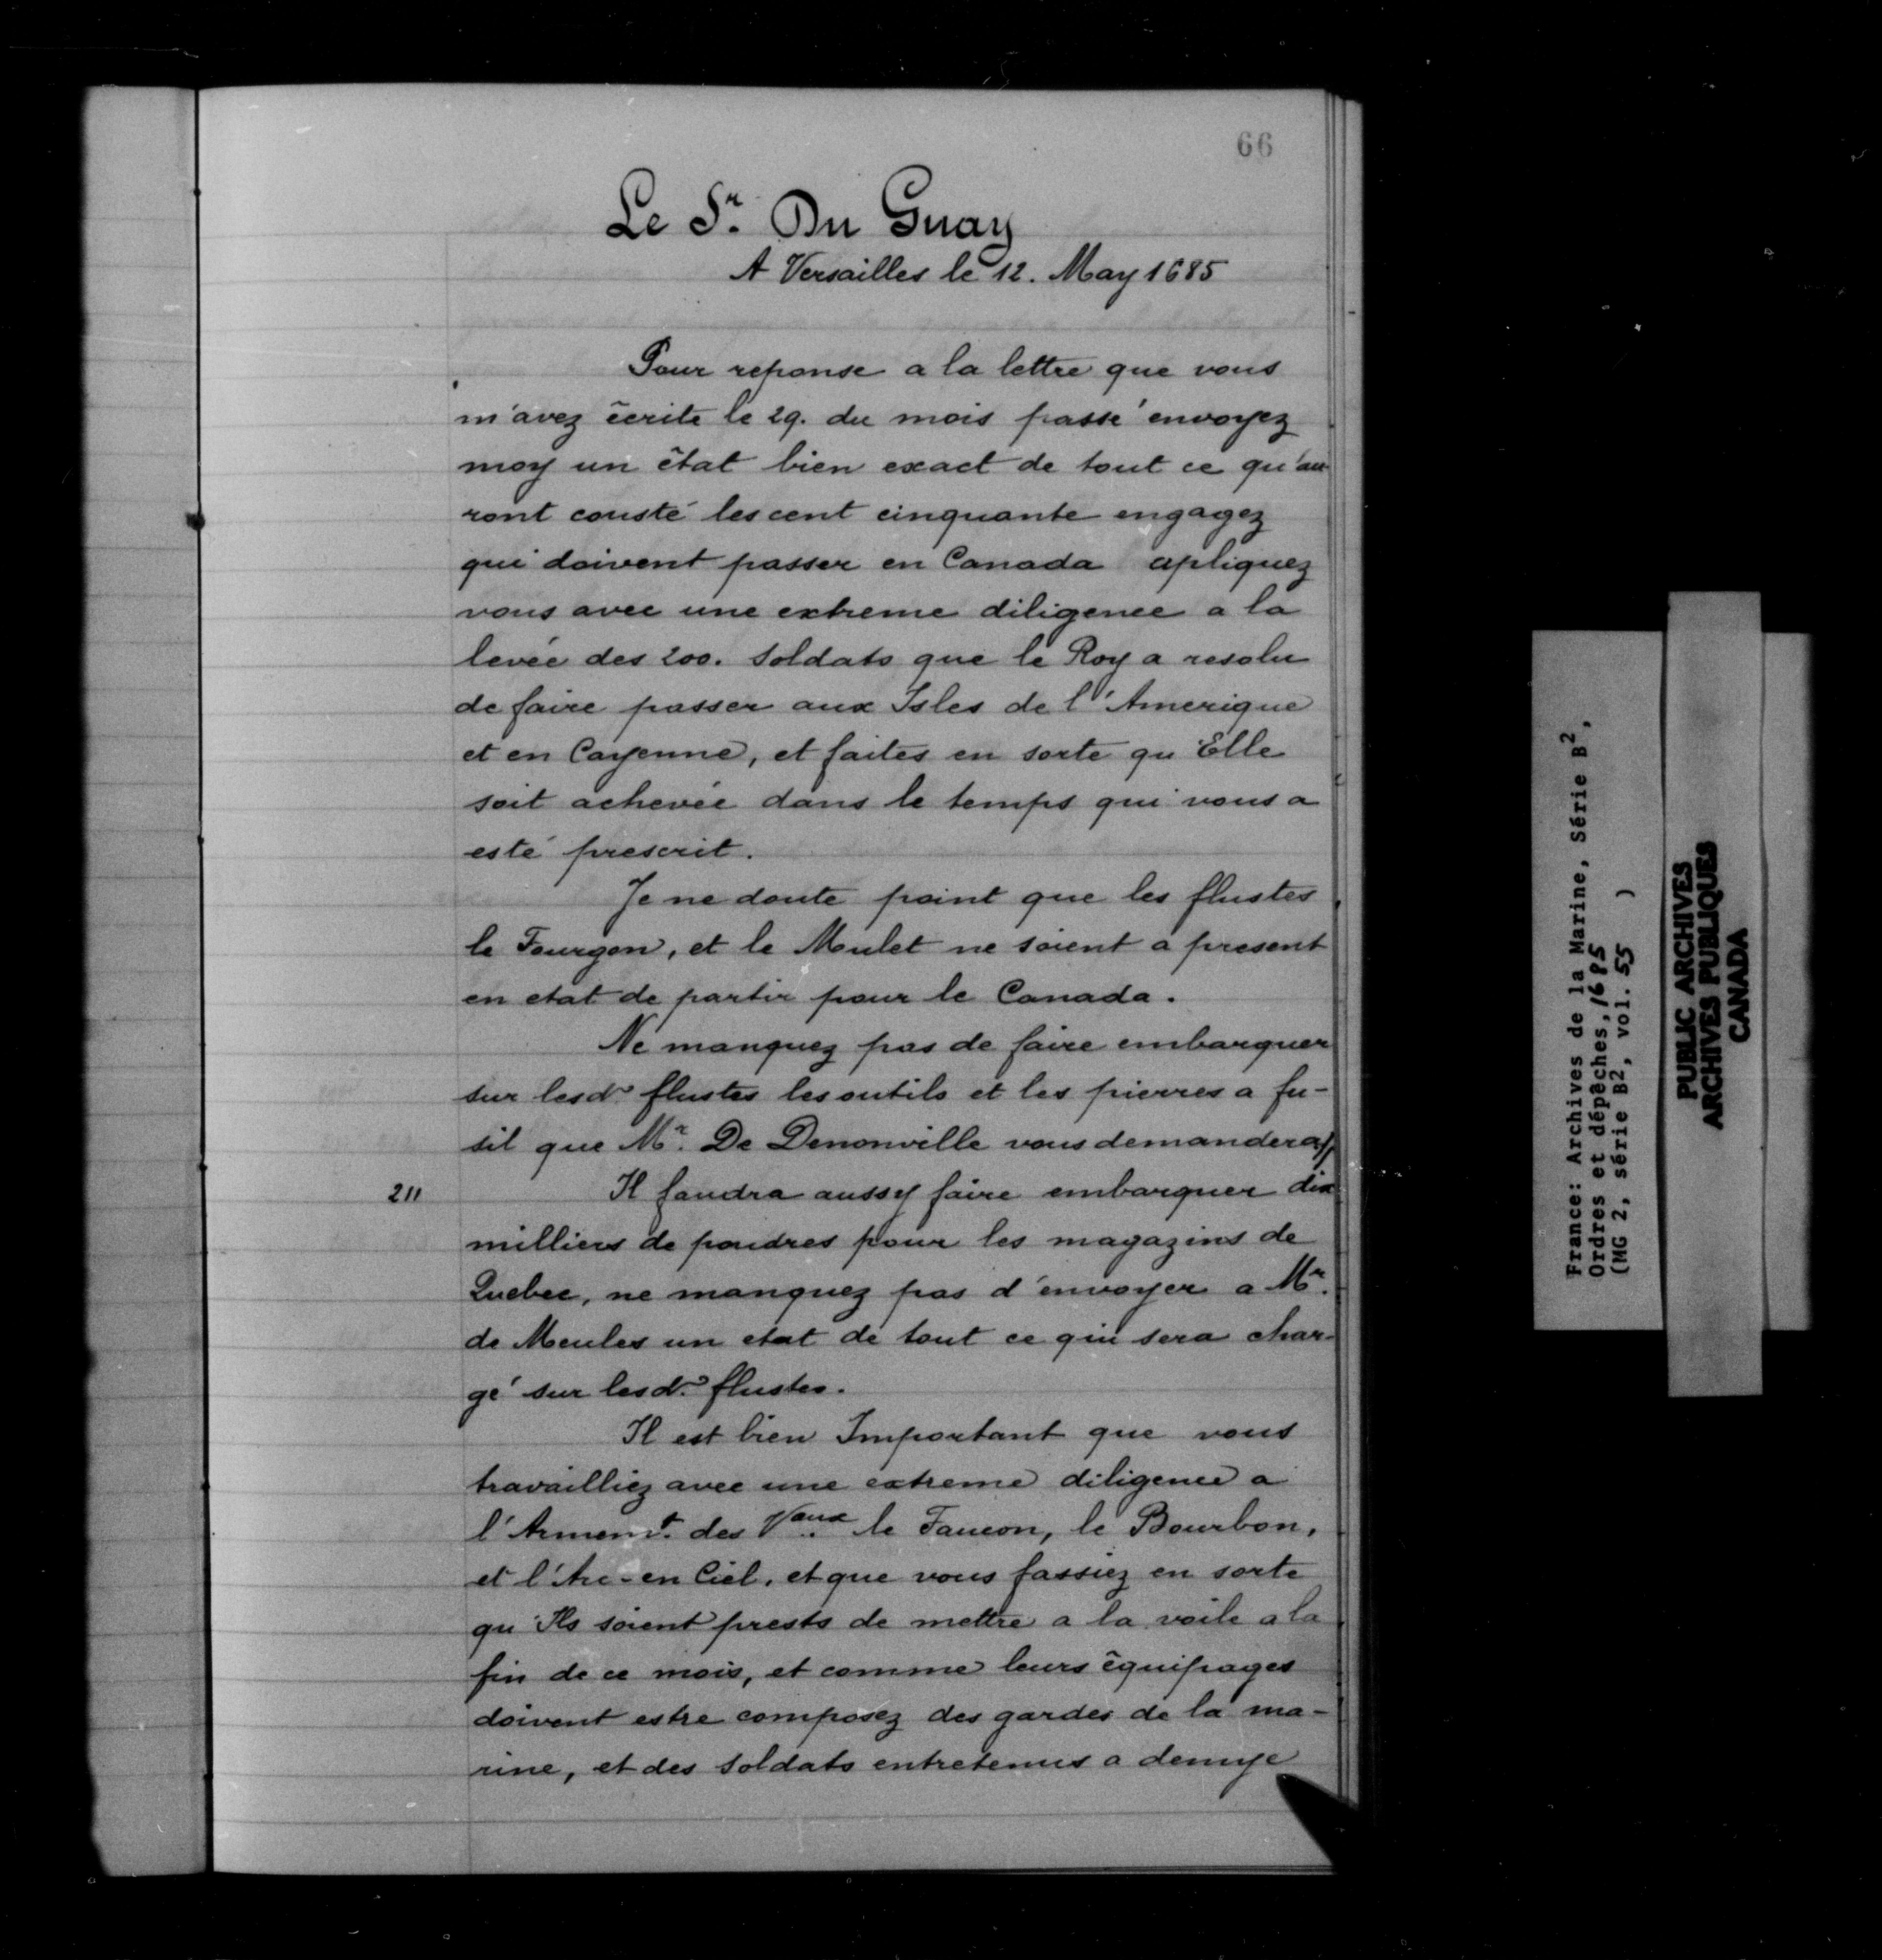 66
Le Sr. Du Guay
A Versailles le 12. May 1685
Pour reponse a la lettre que vous
m'avez écrite le 29. du mois passé envoyez
moy un état bien exact de tout ce qu'au-
ront cousté les cent cinquante engagez
qui doivent passer en Canada apliquez
vous avec une extreme diligence a la
levée des 200. soldats que le Roy a resolu
de faire passer aux Isles de l'Amerique
et en Cayenne, et faites en sorte qu'Elle
soit achevée dans le temps qui vous a
esté prescrit.
Je ne doute point que les flustes
le Fourgon, et le Mulet ne soient a present
en etat de partir pour le Canada.
Ne manquez pas de faire embarquer
sur lesd. flustes les outils et les pierres a fu-
sil que Mr. De Denonville vous demandera//
211
Il faudra aussy faire embarquer dix
milliers de poudres pour les magazins de
Quebec, ne manquez pas d'envoyer a Mr.
de Meules un etat de tout ce qui sera char-
gé sur lesd. flustes.
Il est bien Important que vous
travailliez avec une extreme diligence a
l'Armemt. des Vaux le Faucon, le Bourbon,
et l'Arc-en Ciel, et que vous fassiez en sorte
qu'Ils soient prests de mettre a la voile a la
fin de ce mois, et comme leurs équipages
doivent estre composez des gardes de la ma-
rine, et des soldats entretenus a demye
France: Archives de la Marine, Série B2,
Ordres et dépêches, 1685
(MG 2, série B2, vol. 55 )
PUBLIC ARCHIVES
ARCHIVES PUBLIQUES
CANADA